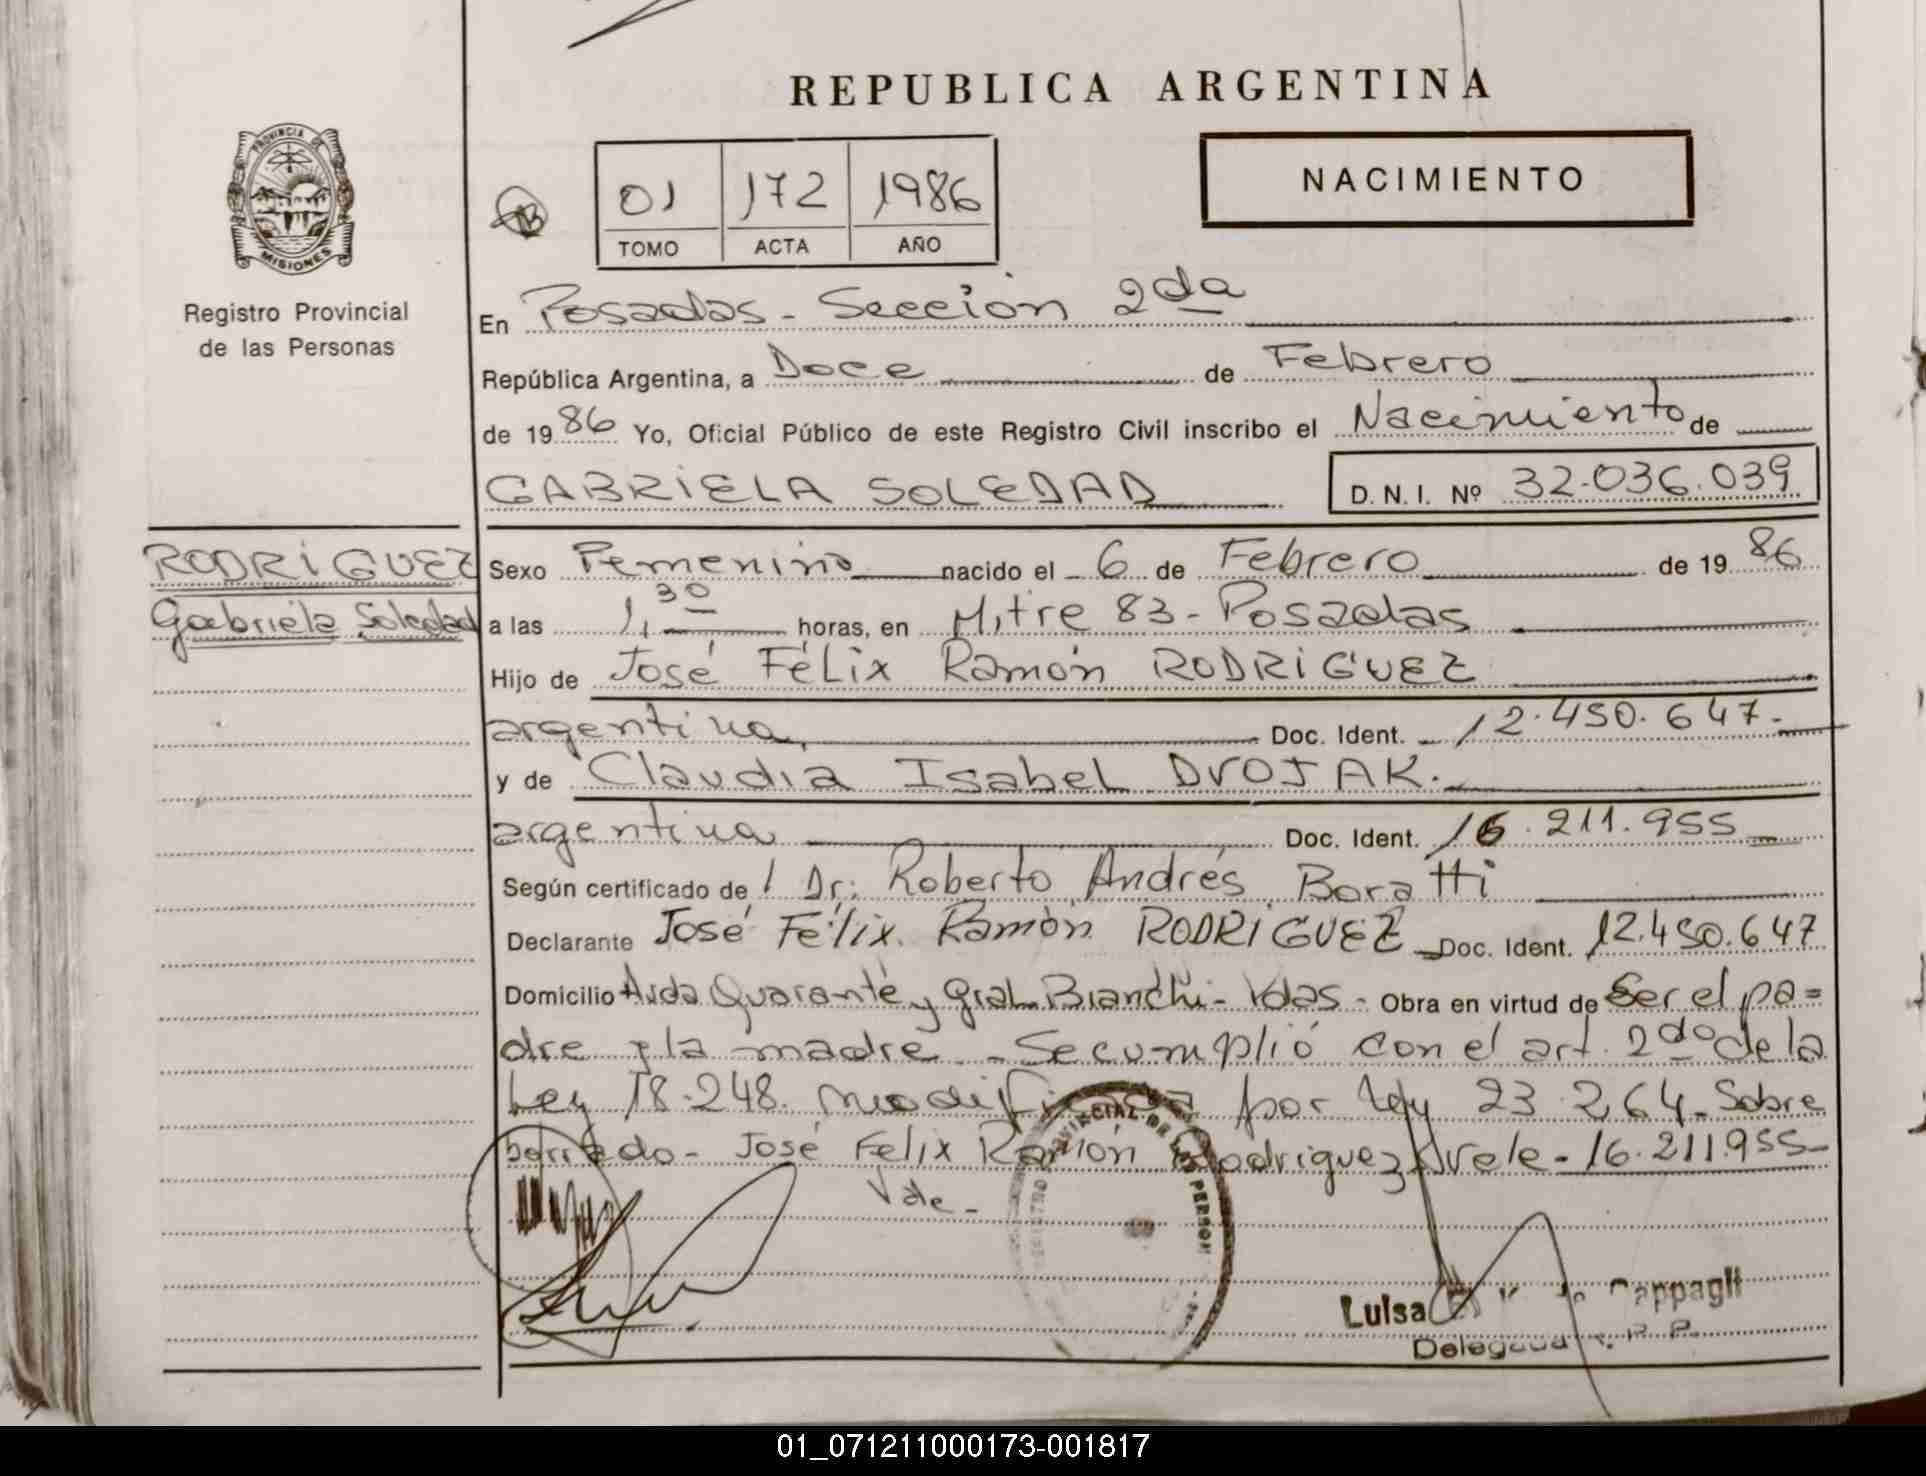 REPUBLICA ARGENTINA
PROVINCIA DE
MISIONES
Registro Provincial
de las Personas
01 172 1986
TOMO ACTA AÑO
NACIMIENTO
En Posadas - Sección 2da
República Argentina, a Doce de Febrero
de 1986 Yo, Oficial Público de este Registro Civil inscribo el Nacimiento de
GABRIELA SOLEDAD D. N. I. Nº 32.036.039
RODRIGUEZ
Gabriela Soledad
Sexo Femenino nacido el 6 de Febrero de 1986
a las 1,30 horas, en Mitre 83 - Posadas
Hijo de José Félix Ramón RODRIGUEZ
argentina, Doc. Ident. 12.450.647.
y de Claudia Isabel DVOJAK.
argentina Doc. Ident. 16.211.955
Según certificado de Dr: Roberto Andrés Boratti
Declarante José Félix Ramón RODRIGUEZ Doc. Ident. 12.450.647
Domicilio Avda Quaranta y Gral Bianchi - Pdas - Obra en virtud de Ser el pa=
dre y la madre - Se cumplió con el art. 2do de la
Ley 18.248. modificada por Ley 23.264 - Sobre
borrado - José Felix Ramón Rodriguez Vale - 16.211.955 -
Vale -
Luisa
Cappagli
Delegada
01_071211000173-001817